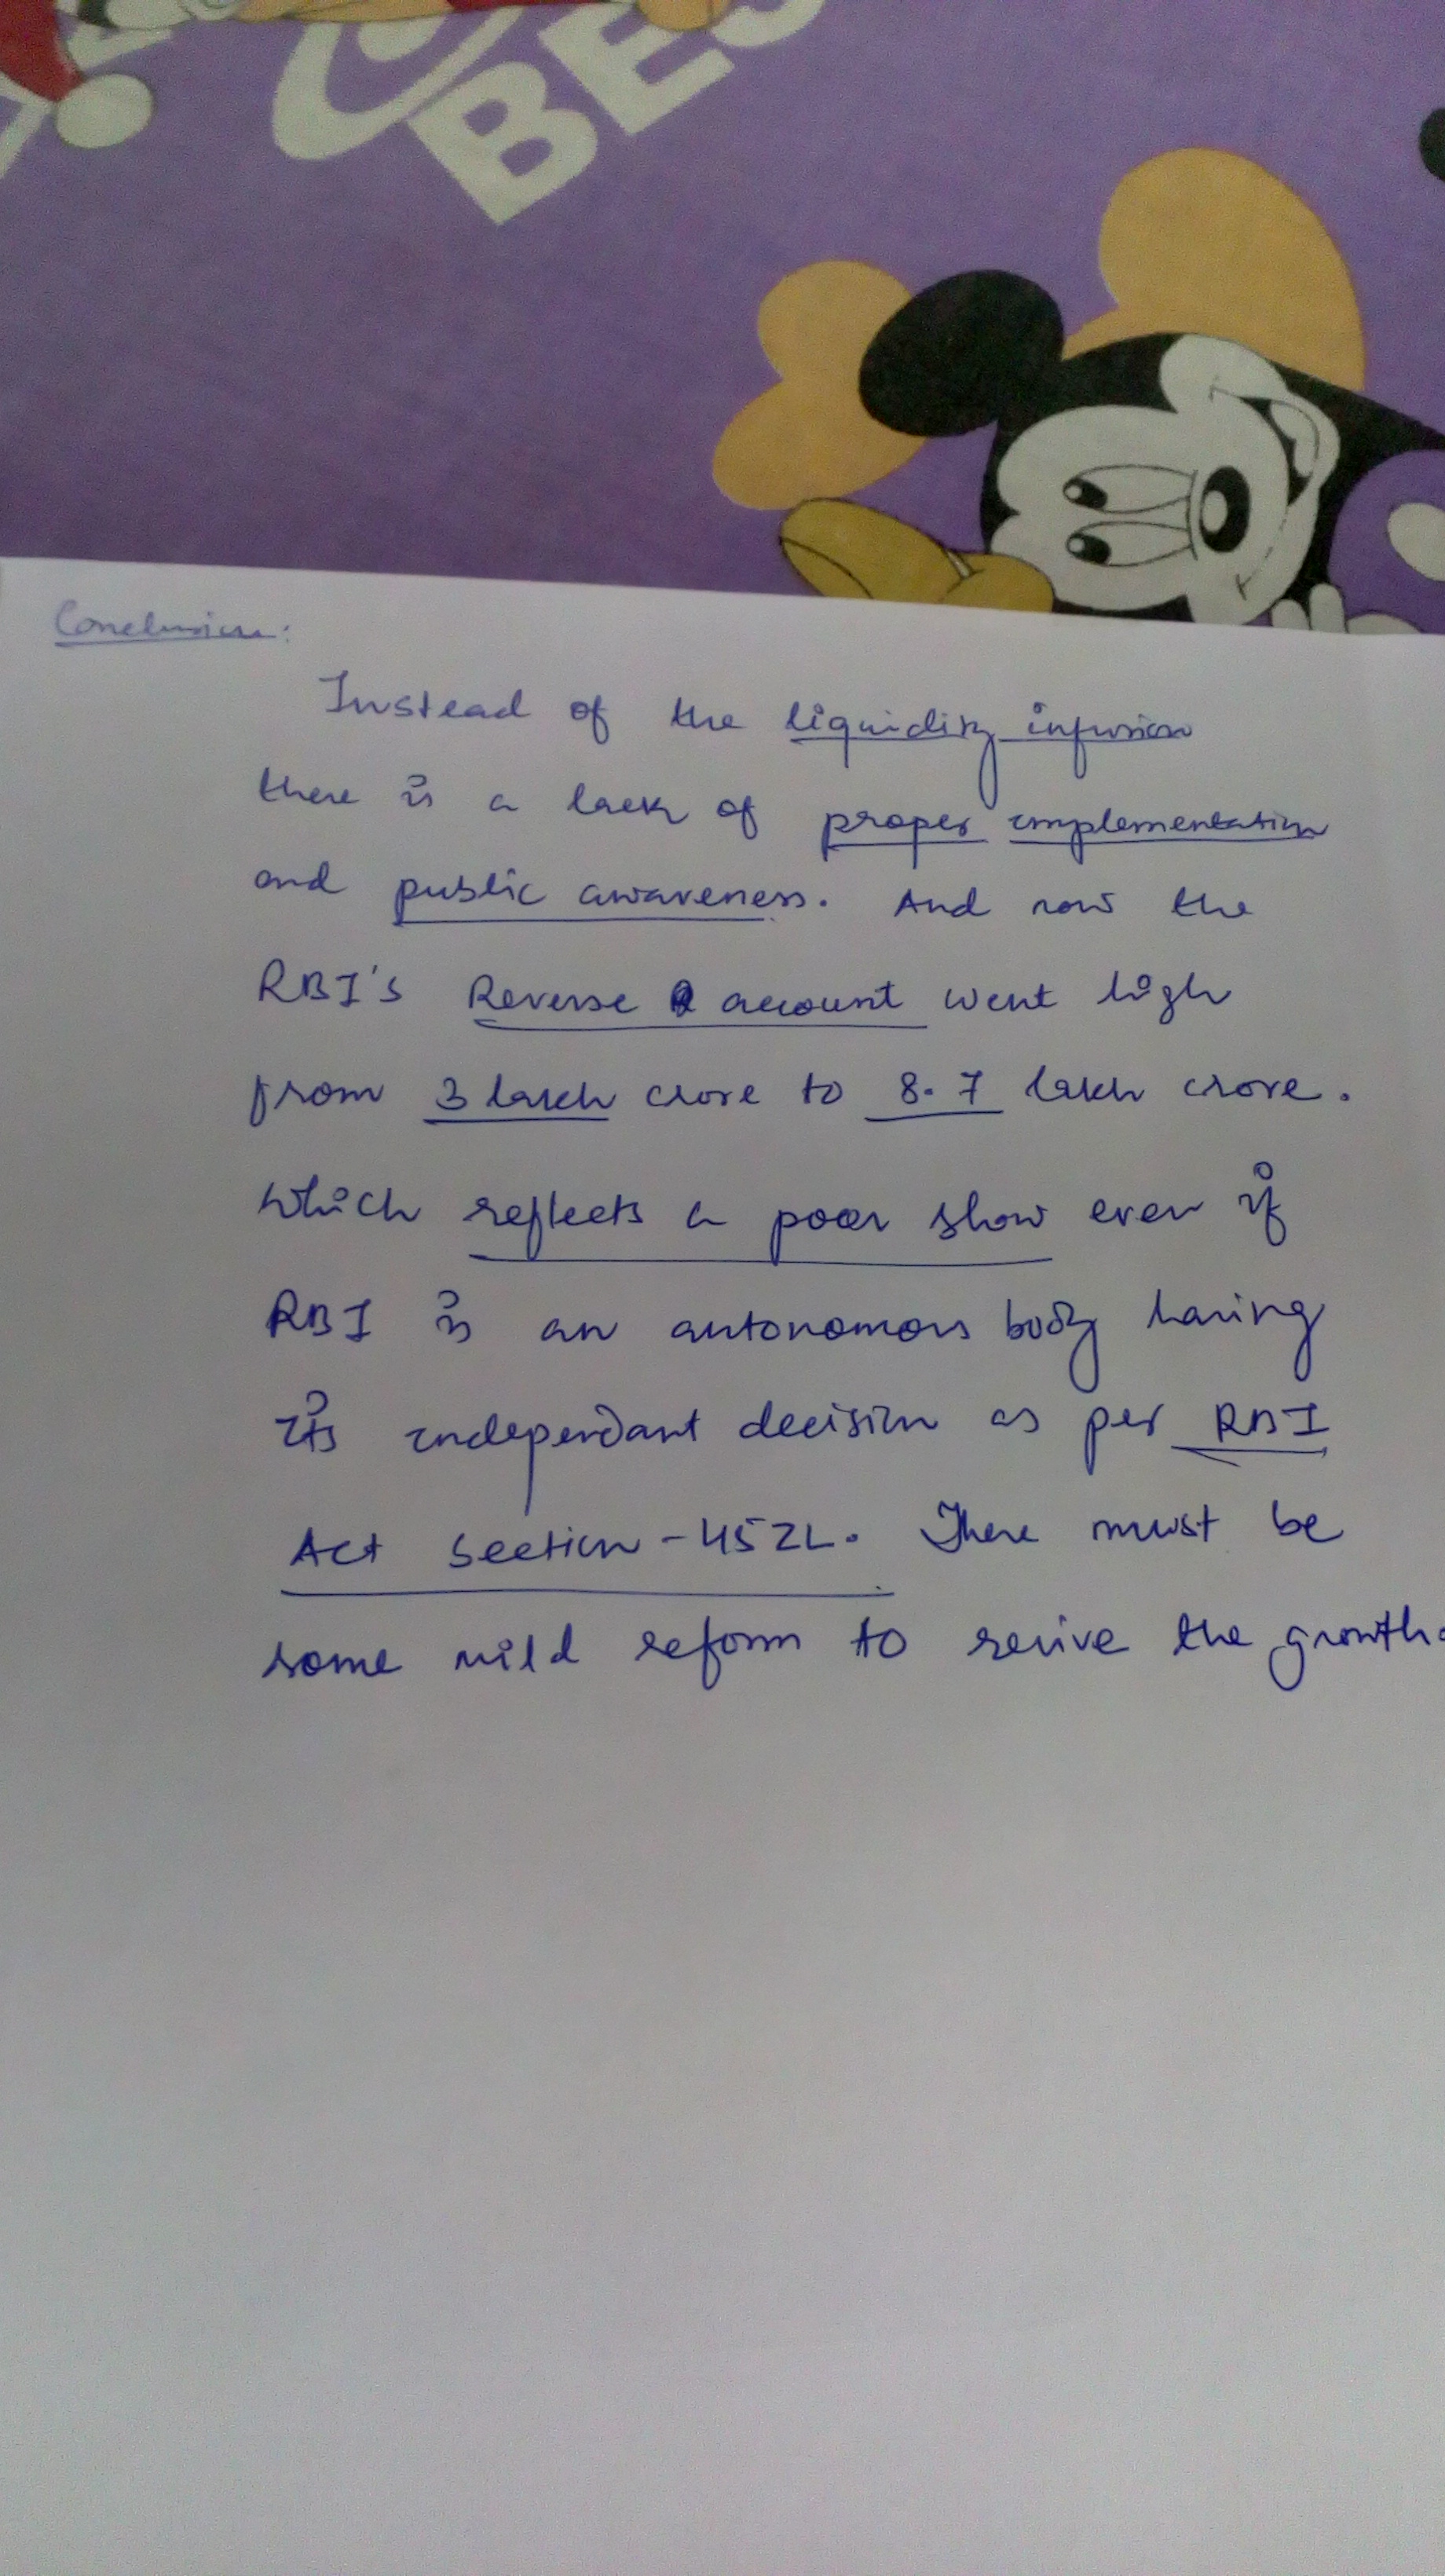 BES
Conclusion:
Instead of the liquidity infusion
there is a lack of proper implementation
and public awareness. And now the
RBI's Reverse account went high
from 3 lakh crore to 8.7 lakh crore.
which reflects a poor show even if
RBI is an autonomous body having
its independant decision as per RBI
Act section - 45ZL. There must be
some mild reform to revive the growth.